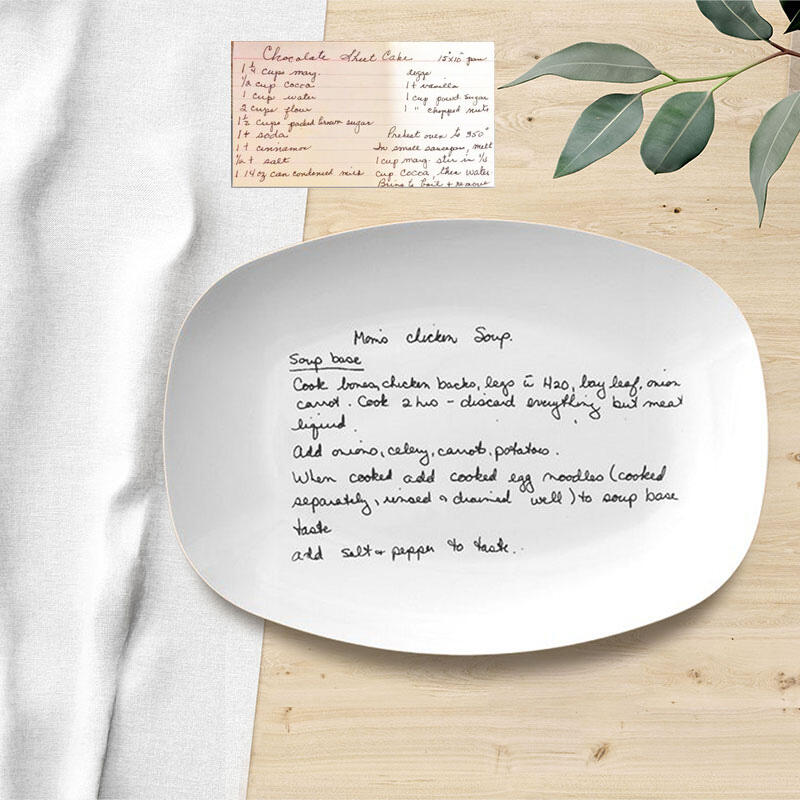 Chocolate Sheet Cake 15x10" pan
1 1/4 cups marg.
1/2 cup cocoa
1 cup water
2 cups flour
1 1/2 cups packed brown sugar
1 t soda
1 t cinnamon
1/2 t salt
1 14 oz can condensed milk
2 eggs
1 t vanilla
1 cup powd sugar
1 " chopped nuts
Preheat oven to 350°
In small saucepan, melt
1 cup marg. stir in 1/4
cup cocoa, then water.
Bring to boil + remove
Mom's chicken Soup.
Soup base
Cook bones, chicken backs, legs c̄ H2O, bay leaf, onion
carrot. Cook 2 hrs - discard everything but meat
liquid.
Add onions, celery, carrots, potatoes.
When cooked add cooked egg noodles (cooked
separately, rinsed & drained well) to soup base
taste
add salt & pepper to taste..